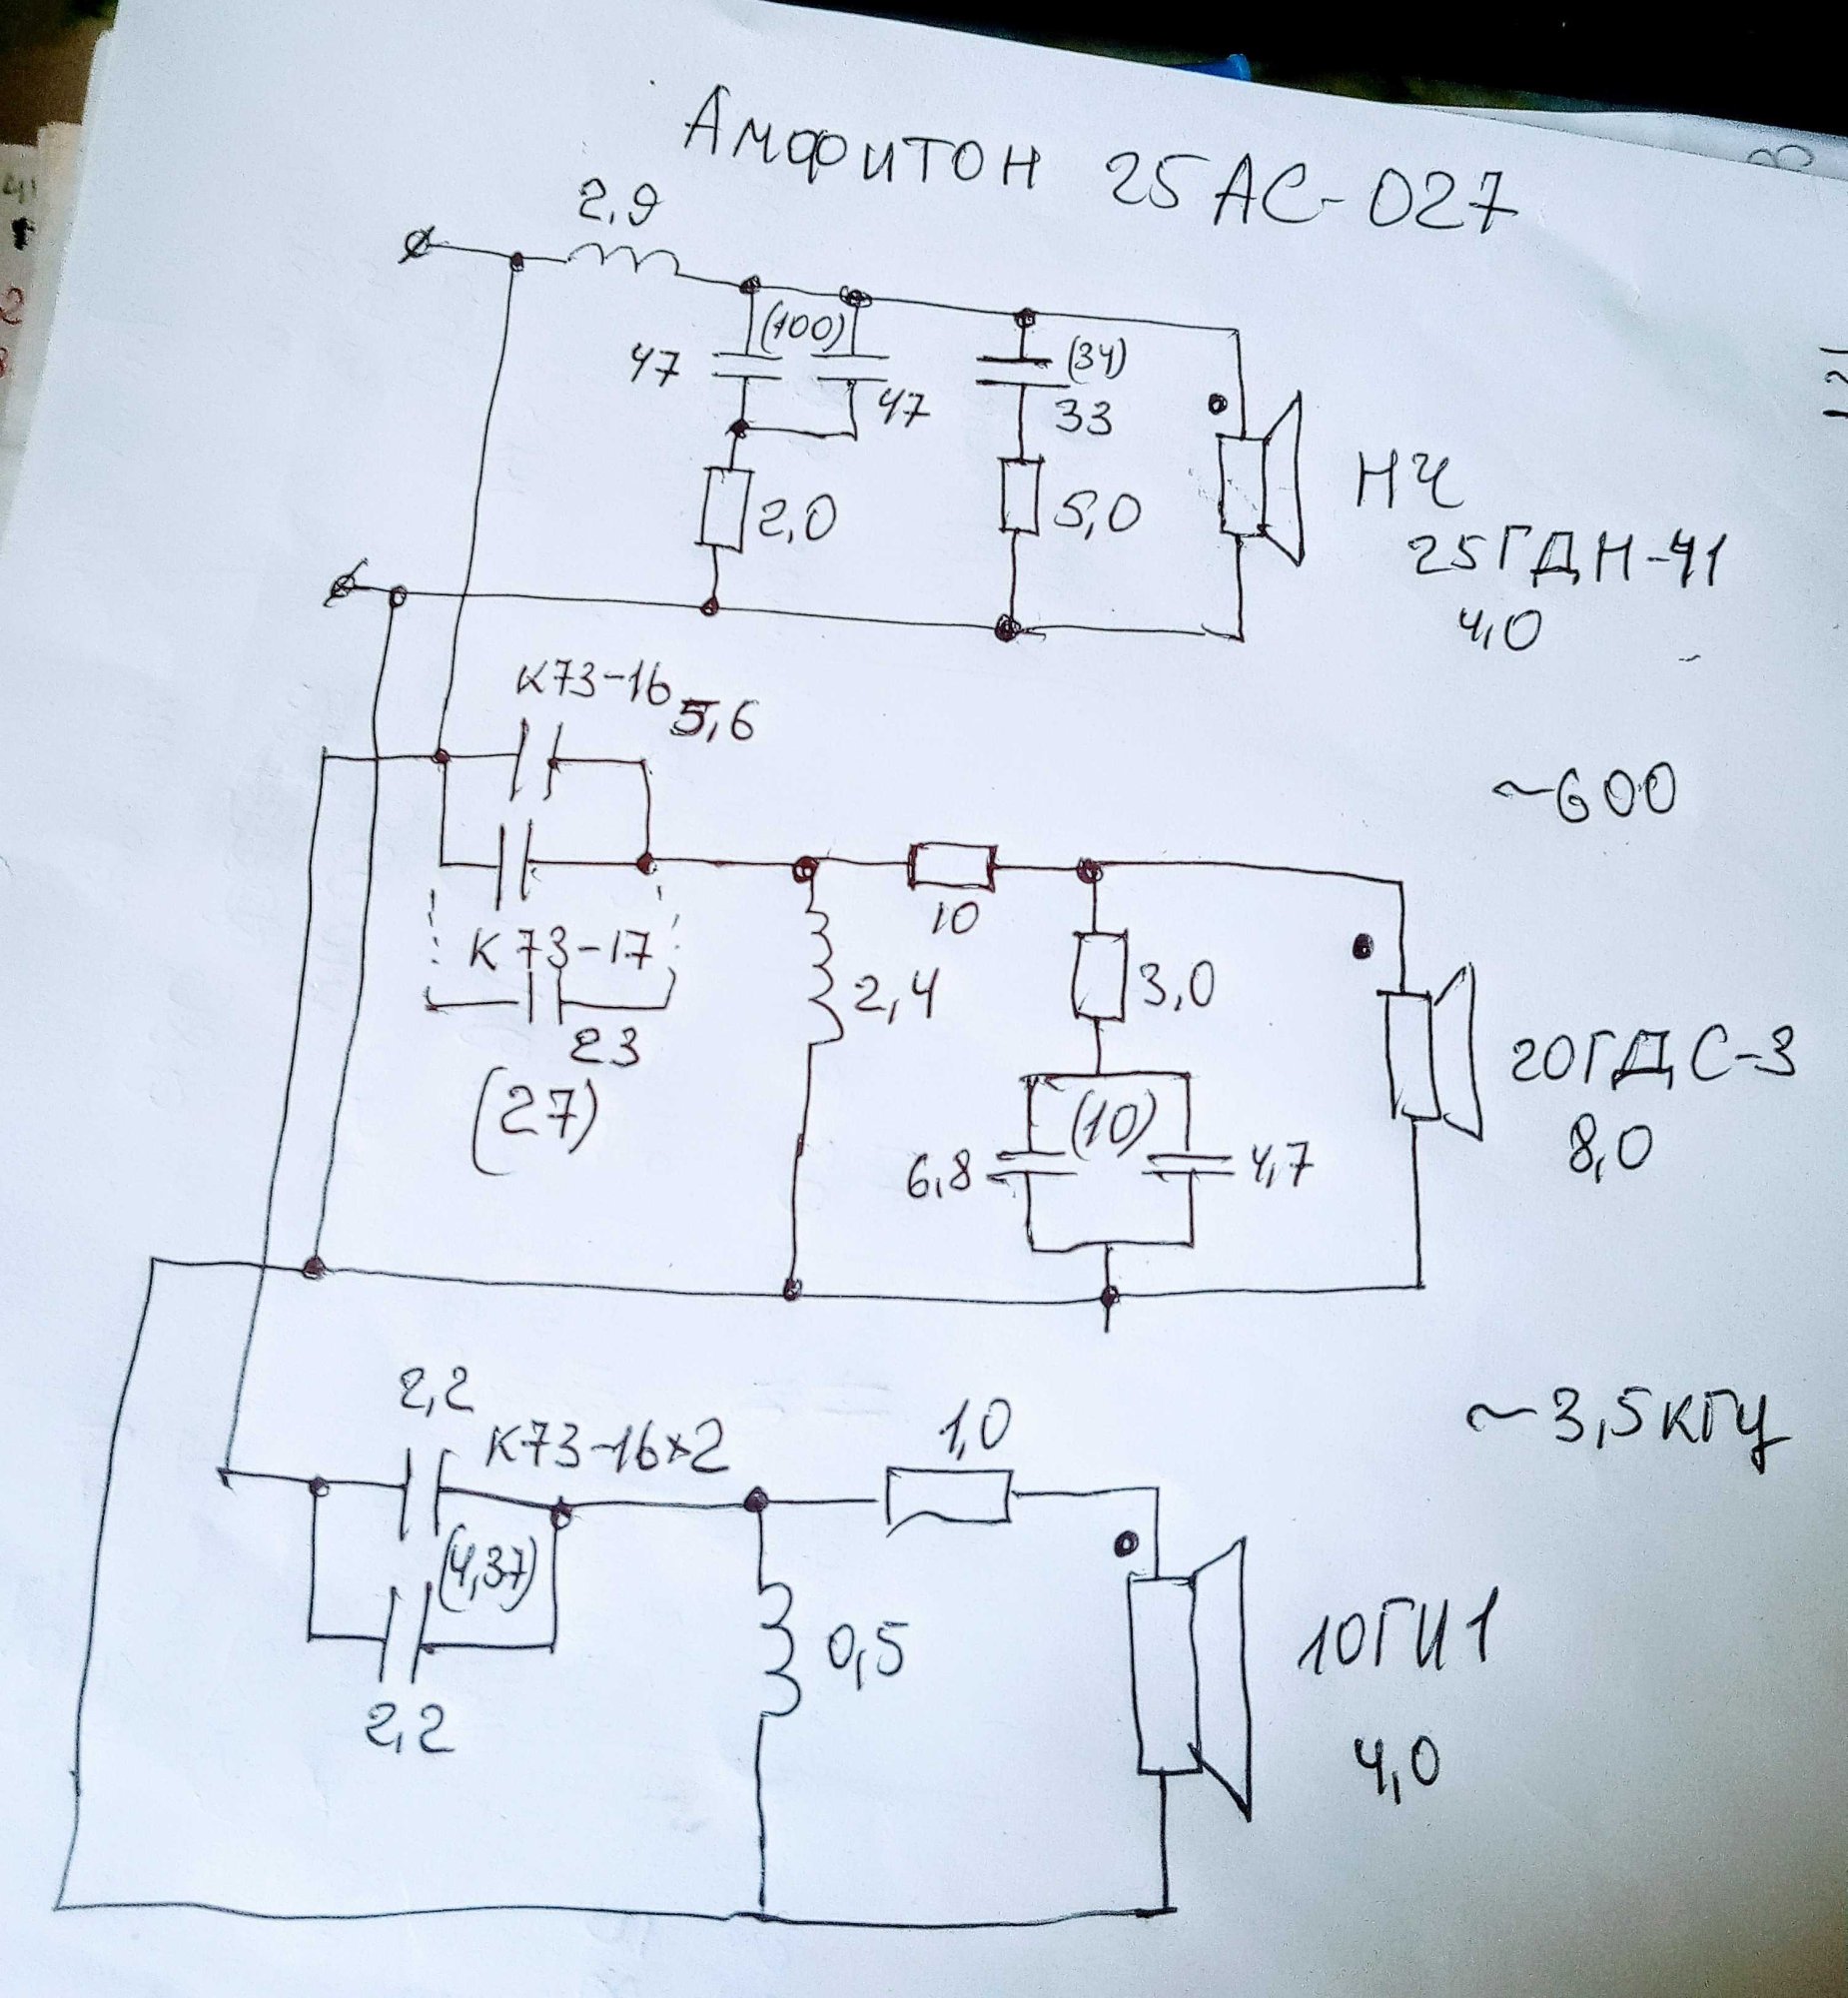 Амфитон 25АС-027
2,9
(100)
47
47
(34)
33
2,0
5,0
НЧ
25ГДН-41
4,0
К73-16
5,6
~600
10
К73-17
2,4
3,0
23
(27)
20ГДС-3
8,0
(10)
6,8
4,7
2,2
К73-16×2
1,0
~3,5кГц
(4,37)
0,5
2,2
10ГИ1
4,0